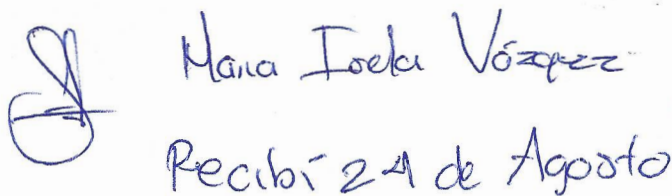 Maria Isela Vázquez
Recibí 24 de Agosto